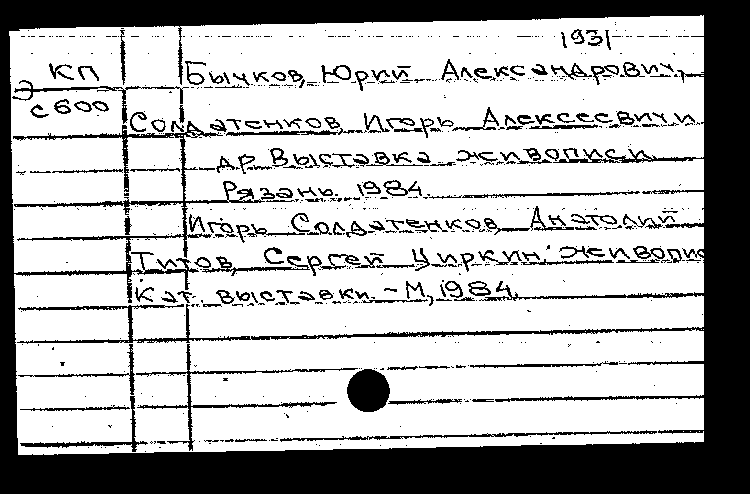 1931
КП
Бычков, Юрий Александрович,
с600
Солдатенков, Игорь Алексеевич и
др. Выставка живописи.
Рязань. 1984.
Игорь Солдатенков, Анатолий
Титов, Сергей Циркин: живопис
Кат. выставки. - М, 1984.